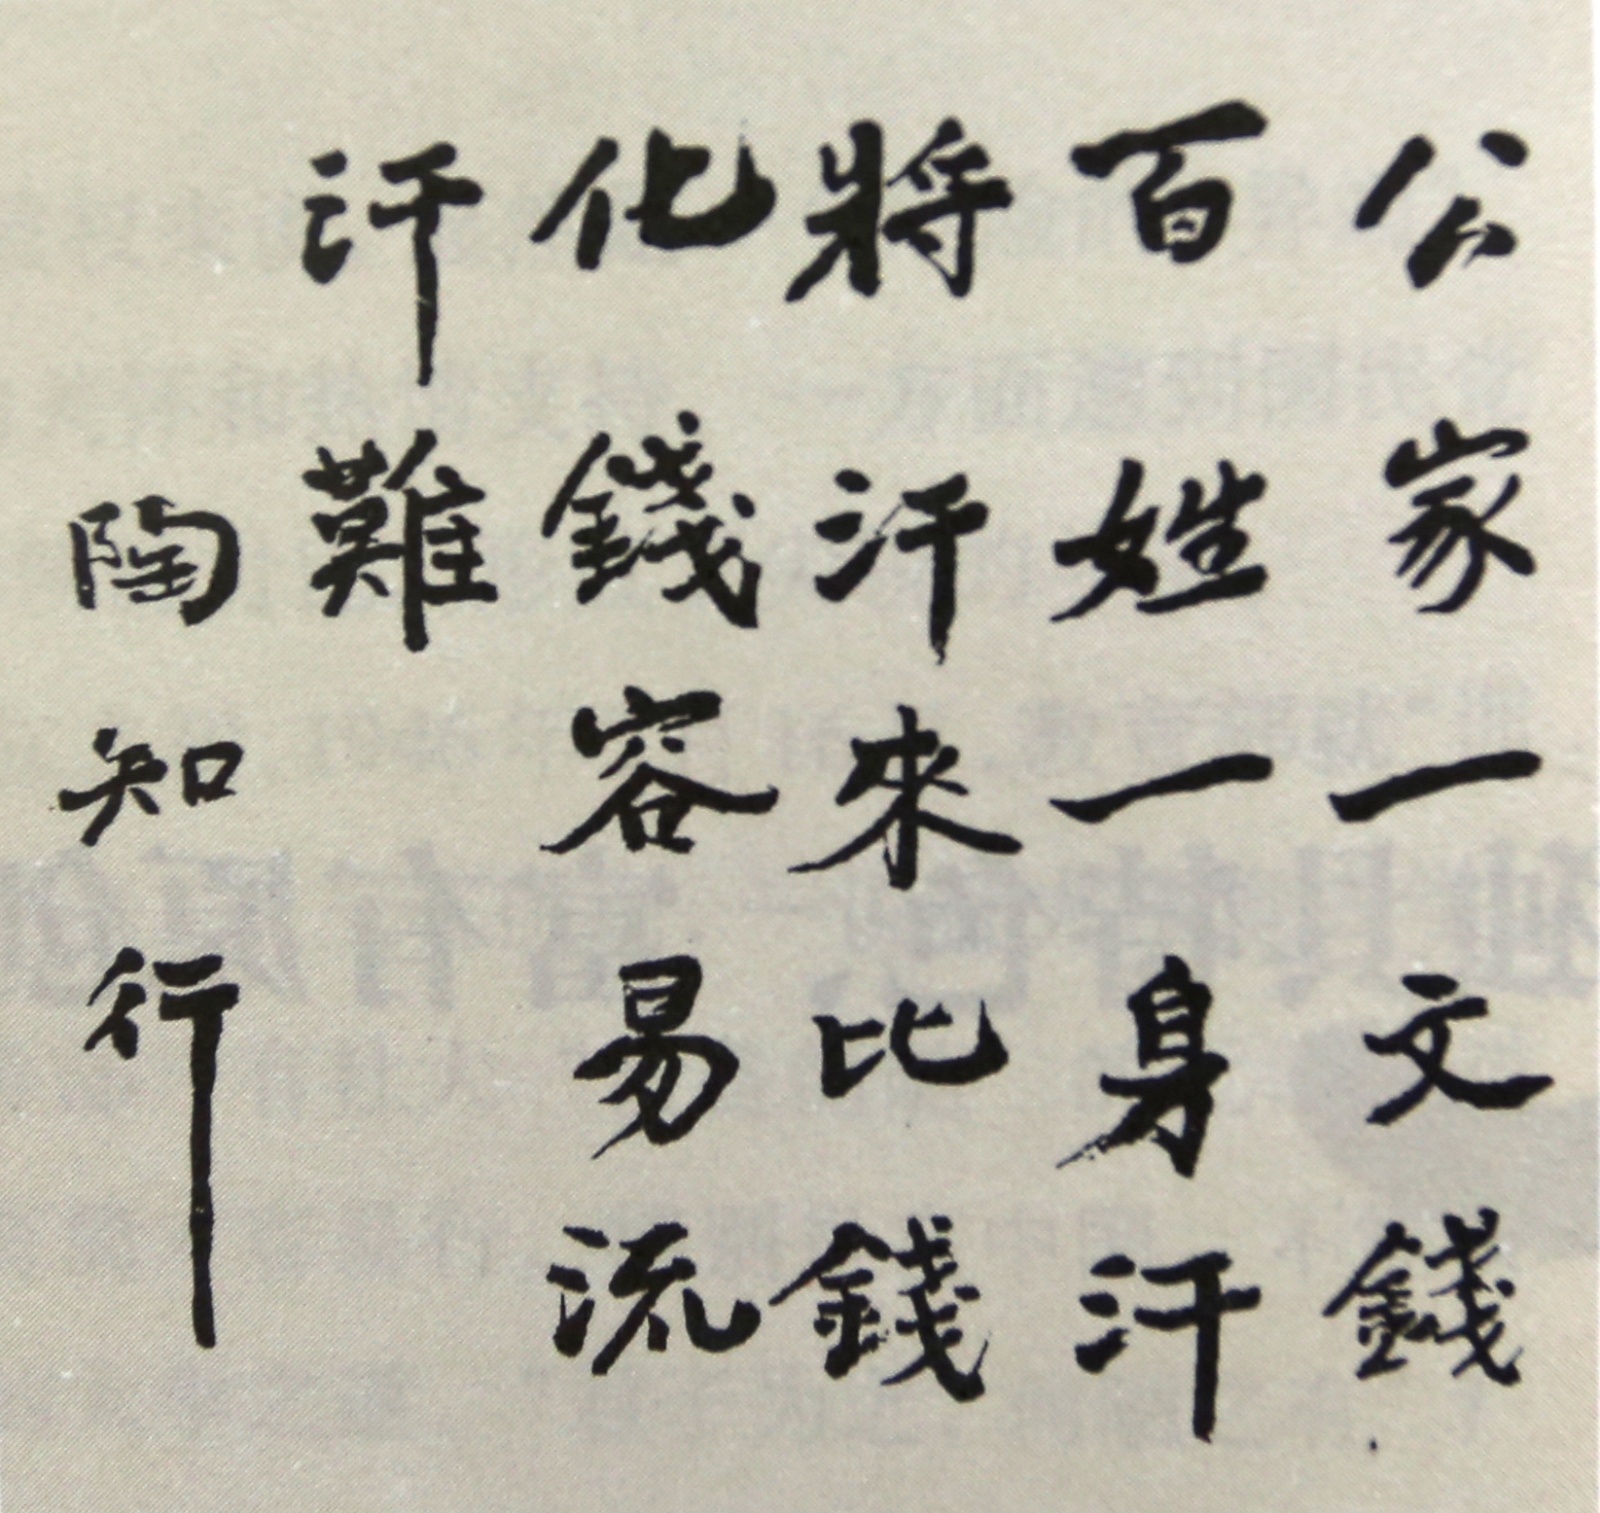 公家一文錢
百姓一身汗
將汗來比錢
化錢容易流
汗難
陶知行